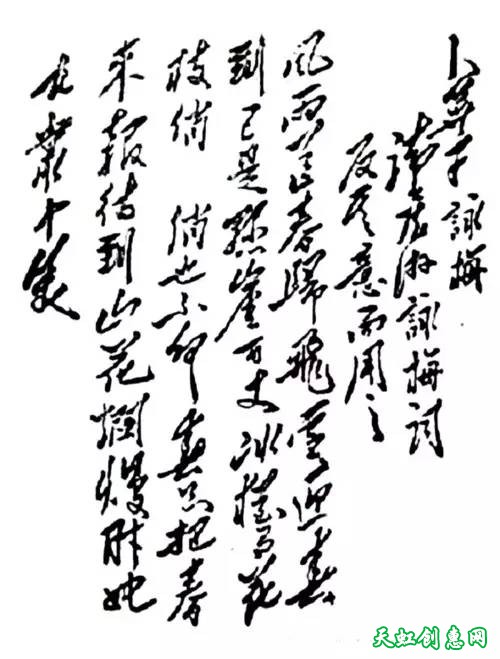 卜算子 詠梅
讀陸游詠梅詞
反其意而用之
風雨送春歸飛雪迎春
到已是懸崖百丈冰猶有花
枝俏 俏也不爭春只把春
来報待到山花爛熳時她
在叢中笑
天虹创惠网